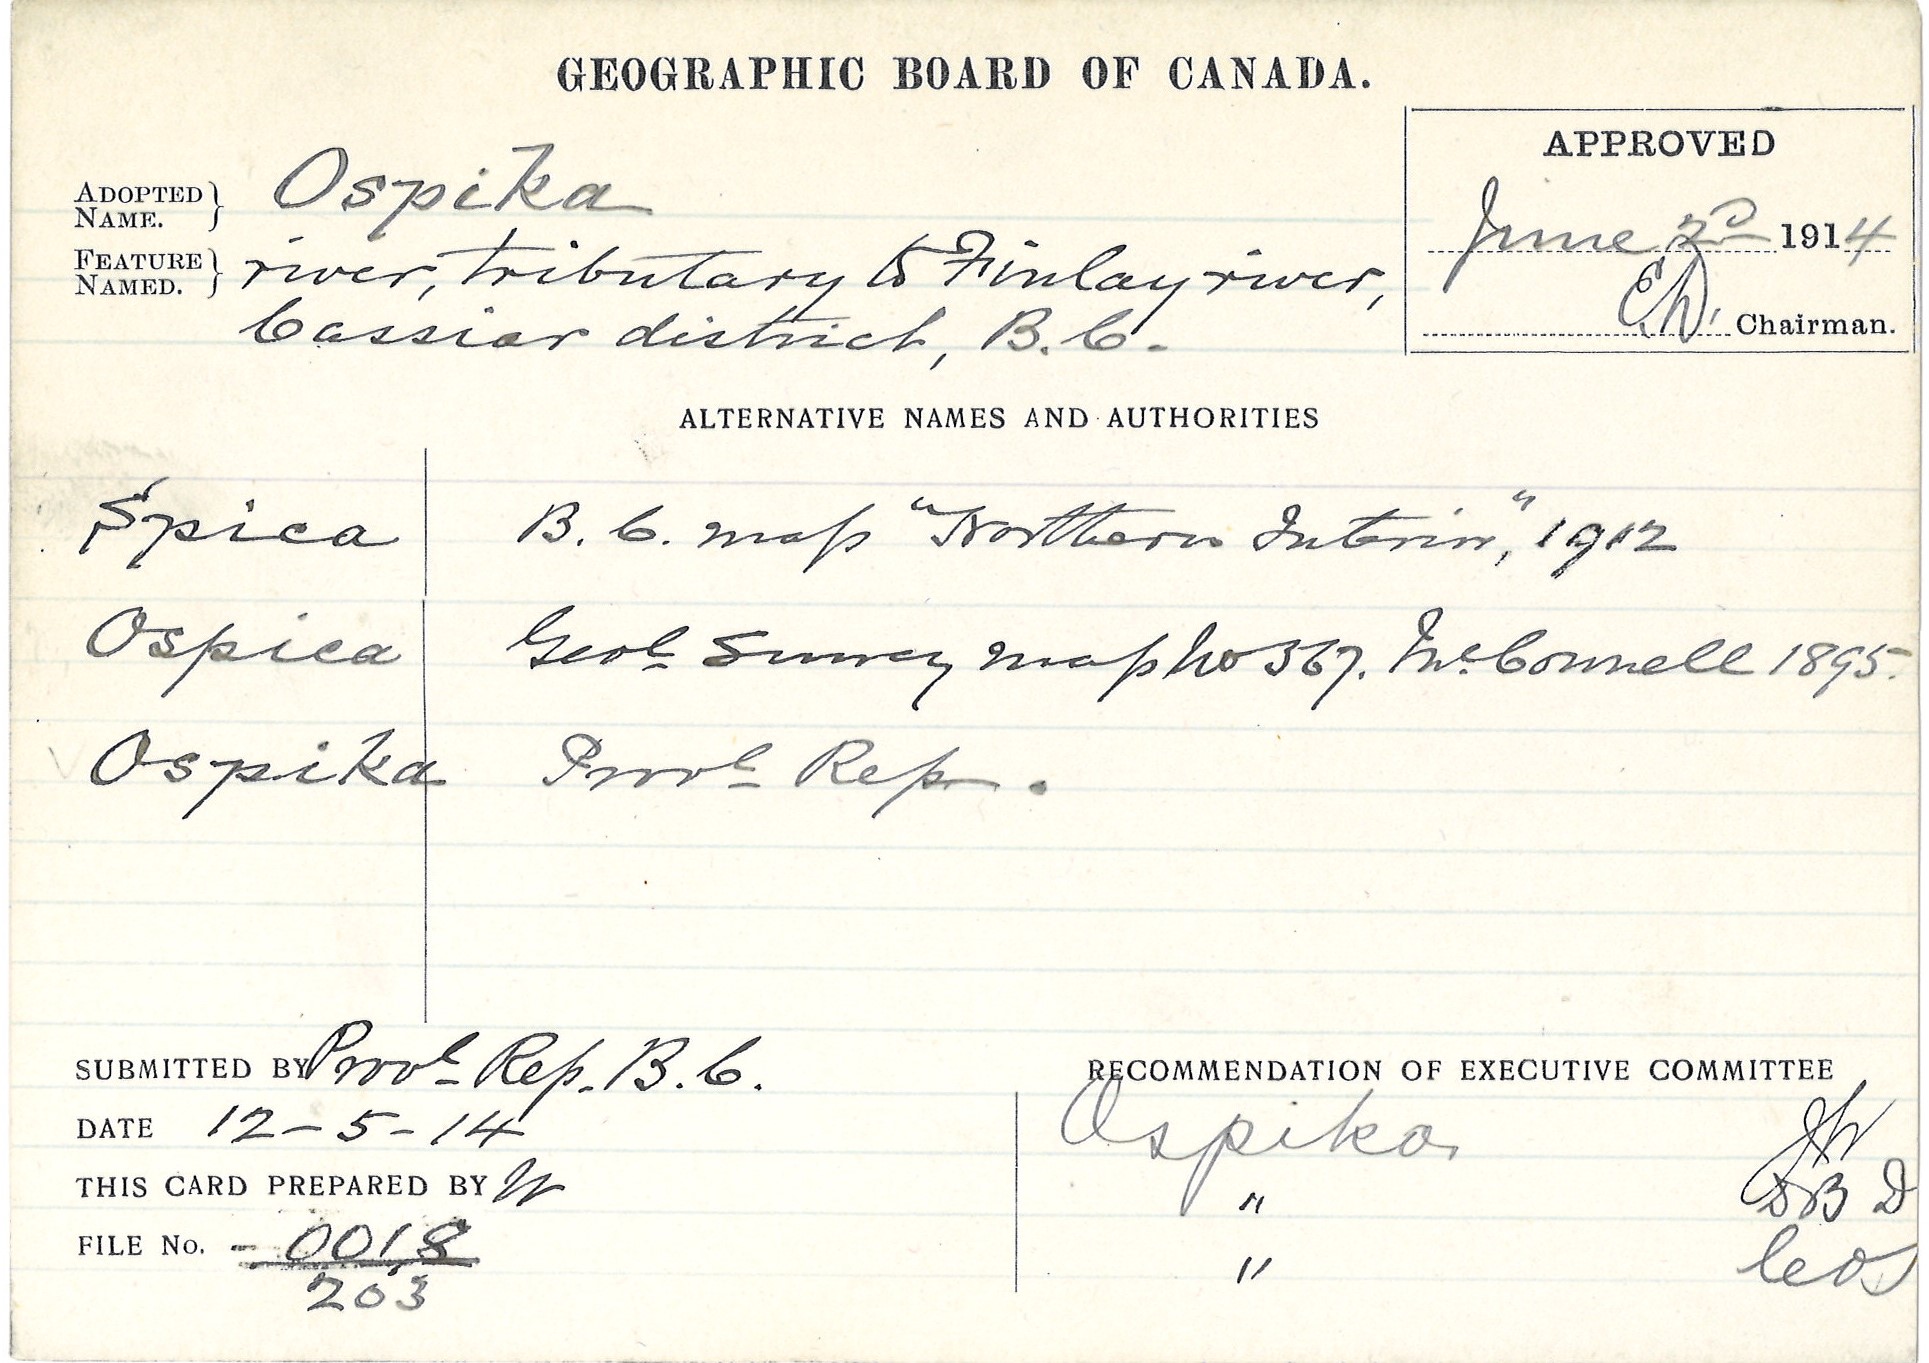 GEOGRAPHIC BOARD OF CANADA.
APPROVED
June 2nd 1914
E.D. Chairman.
ADOPTED NAME. } Ospika
FEATURE NAMED. } river, tributary to Finlay river,
Cassiar district, B.C.
ALTERNATIVE NAMES AND AUTHORITIES
Spica B.C. map "Northern Interior", 1912
Ospica Geol. Survey map No 567. McConnell 1895.
Ospika Provl. Rep.
SUBMITTED BY Provl. Rep. B.C.
DATE 12-5-14
THIS CARD PREPARED BY W
FILE No. - 0018
203
RECOMMENDATION OF EXECUTIVE COMMITTEE
Ospika
" DBD
"